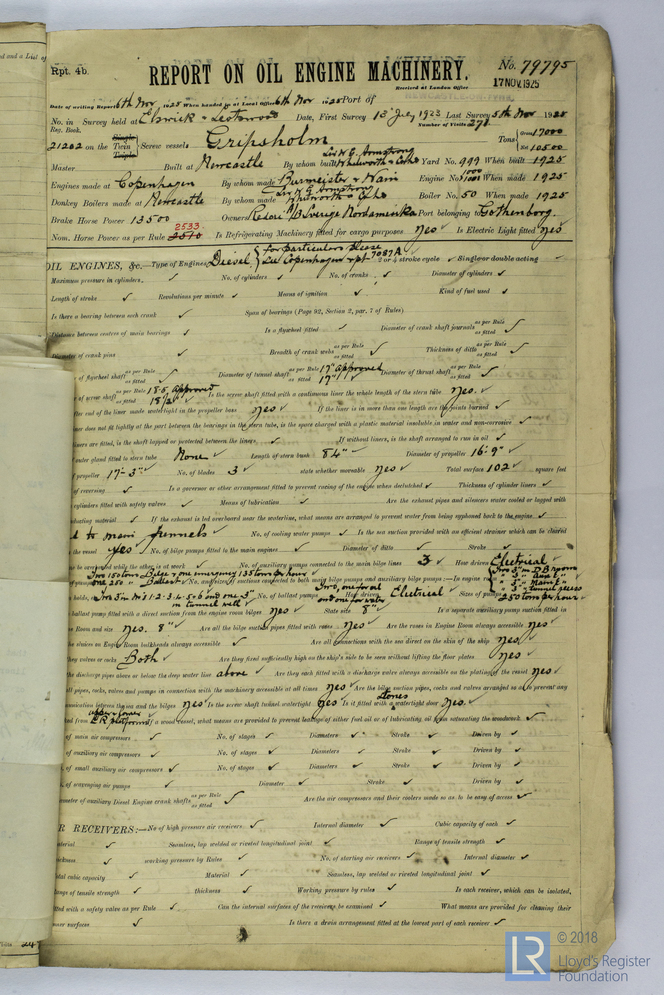 Rpt. 4b.
REPORT ON OIL ENGINE MACHINERY.
No. 79795
Received at London Office
17 NOV. 1925
Date of writing Report 6th Nov 1925 When handed in at Local Office 6th Nov 1925 Port of
No. in Survey held at Elswick Date, First Survey 13 July 1923 Last Survey 5th Nov 1925
Reg. Book. Number of Visits 271
21202 on the Single Twin Triple Screw vessels Gripsholm Tons Gross 17000 Net 10500
Master Built at Newcastle By whom built Sir W G Armstrong Whitworth & Co Ltd Yard No. 999 When built 1925
Engines made at Copenhagen By whom made Burmeister & Wain Engine No. When made 1925
Donkey Boilers made at Newcastle By whom made Sir W G Armstrong Whitworth & Co Ltd Boiler No. 50 When made 1925
Brake Horse Power 13500 Owners Rederi A/B Sverige Nordamerika Port belonging to Gothenborg.
Nom. Horse Power as per Rule 2510 2533 Is Refrigerating Machinery fitted for cargo purposes Yes Is Electric Light fitted Yes
OIL ENGINES, &c.— Type of Engines Diesel for particulars please see Copenhagen rpt 7087A 2 or 4 stroke cycle Single or double acting
Maximum pressure in cylinders, No. of cylinders No. of cranks Diameter of cylinders
Length of stroke Revolutions per minute Means of ignition Kind of fuel used
Is there a bearing between each crank Span of bearings (Page 92, Section 2, par. 7 of Rules)
Distance between centres of main bearings Is a flywheel fitted Diameter of crank shaft journals as per Rule as fitted
Diameter of crank pins Breadth of crank webs as per Rule as fitted Thickness of ditto as per Rule as fitted
of flywheel shaft as per Rule as fitted Diameter of tunnel shaft as per Rule 17" Approved as fitted 17" Diameter of thrust shaft as per Rule as fitted
of screw shaft as per Rule 18.5 Approved as fitted 18 1/2" Is the screw shaft fitted with a continuous liner the whole length of the stern tube Yes.
after end of the liner made watertight in the propeller boss Yes If the liner is in more than one length are the joints burned
liner does not fit tightly at the part between the bearings in the stern tube, is the space charged with a plastic material insoluble in water and non-corrosive
liners are fitted, is the shaft lapped or protected between the liners, If without liners, is the shaft arranged to run in oil
outer gland fitted to stern tube None Length of stern bush 84" Diameter of propeller 16'-9"
of propeller 17'-3" No. of blades 3 state whether moveable Yes Total surface 102 square feet
of reversing Is a governor or other arrangement fitted to prevent racing of the engine when declutched Thickness of cylinder liners
cylinders fitted with safety valves Means of lubrication Are the exhaust pipes and silencers water cooled or lagged with
conducting material If the exhaust is led overboard near the waterline, what means are arranged to prevent water from being syphoned back to the engine
led to main funnels No. of cooling water pumps Is the sea suction provided with an efficient strainer which can be cleared
the vessel Yes No. of bilge pumps fitted to the main engines Diameter of ditto Stroke
be overhauled while the other is at work No. of auxiliary pumps connected to the main bilge lines 3 How driven Electrical
Two 150 tons Bilge & one emergency 135 tons per hour
one 250 " Ballast No. and sizes of suctions connected to both main bilge pumps and auxiliary bilge pumps :—In engine room
holds, &c. Two 3 in No 1-2-3-4-5-6 and one 3" in tunnel well No. of ballast pumps How driven Electrical Sizes of pumps 250 tons per hour
ballast pump fitted with a direct suction from the engine room bilges Yes State size 8" Is a separate auxiliary pump suction fitted in
Room and size Yes. 8" Are all the bilge suction pipes fitted with roses Yes Are the roses in Engine Room always accessible Yes
the sluices on Engine Room bulkheads always accessible Are all connections with the sea direct on the skin of the ship Yes
they valves or cocks Both Are they fixed sufficiently high on the ship's side to be seen without lifting the floor plates Yes
the discharge pipes above or below the deep water line above Are they each fitted with a discharge valve always accessible on the plating of the vessel Yes
all pipes, cocks, valves and pumps in connection with the machinery accessible at all times Yes Are the bilge suction pipes, cocks and valves arranged so as to prevent any
communication between the sea and the bilges Yes Is the screw shaft tunnel watertight Yes Is it fitted with a watertight door Yes.
ed from upper & lower E.R. platforms a wood vessel, what means are provided to prevent leakage of either fuel oil or of lubricating oil from saturating the woodwork
of main air compressors No. of stages Diameters Stroke Driven by
of auxiliary air compressors No. of stages Diameters Stroke Driven by
of small auxiliary air compressors No. of stages Diameters Stroke Driven by
of scavenging air pumps Diameter Stroke Driven by
Diameter of auxiliary Diesel Engine crank shafts as per Rule as fitted Are the air compressors and their coolers made so as to be easy of access
R RECEIVERS:— No of high pressure air receivers Internal diameter Cubic capacity of each
material Seamless, lap welded or riveted longitudinal joint Range of tensile strength
thickness working pressure by Rules No. of starting air receivers Internal diameter
total cubic capacity Material Seamless, lap welded or riveted longitudinal joint
Range of tensile strength thickness Working pressure by rules Is each receiver, which can be isolated,
fitted with a safety valve as per Rule Can the internal surfaces of the receivers be examined What means are provided for cleaning their
inner surfaces Is there a drain arrangement fitted at the lowest part of each receiver
LR © 2018
Lloyd's Register
Foundation